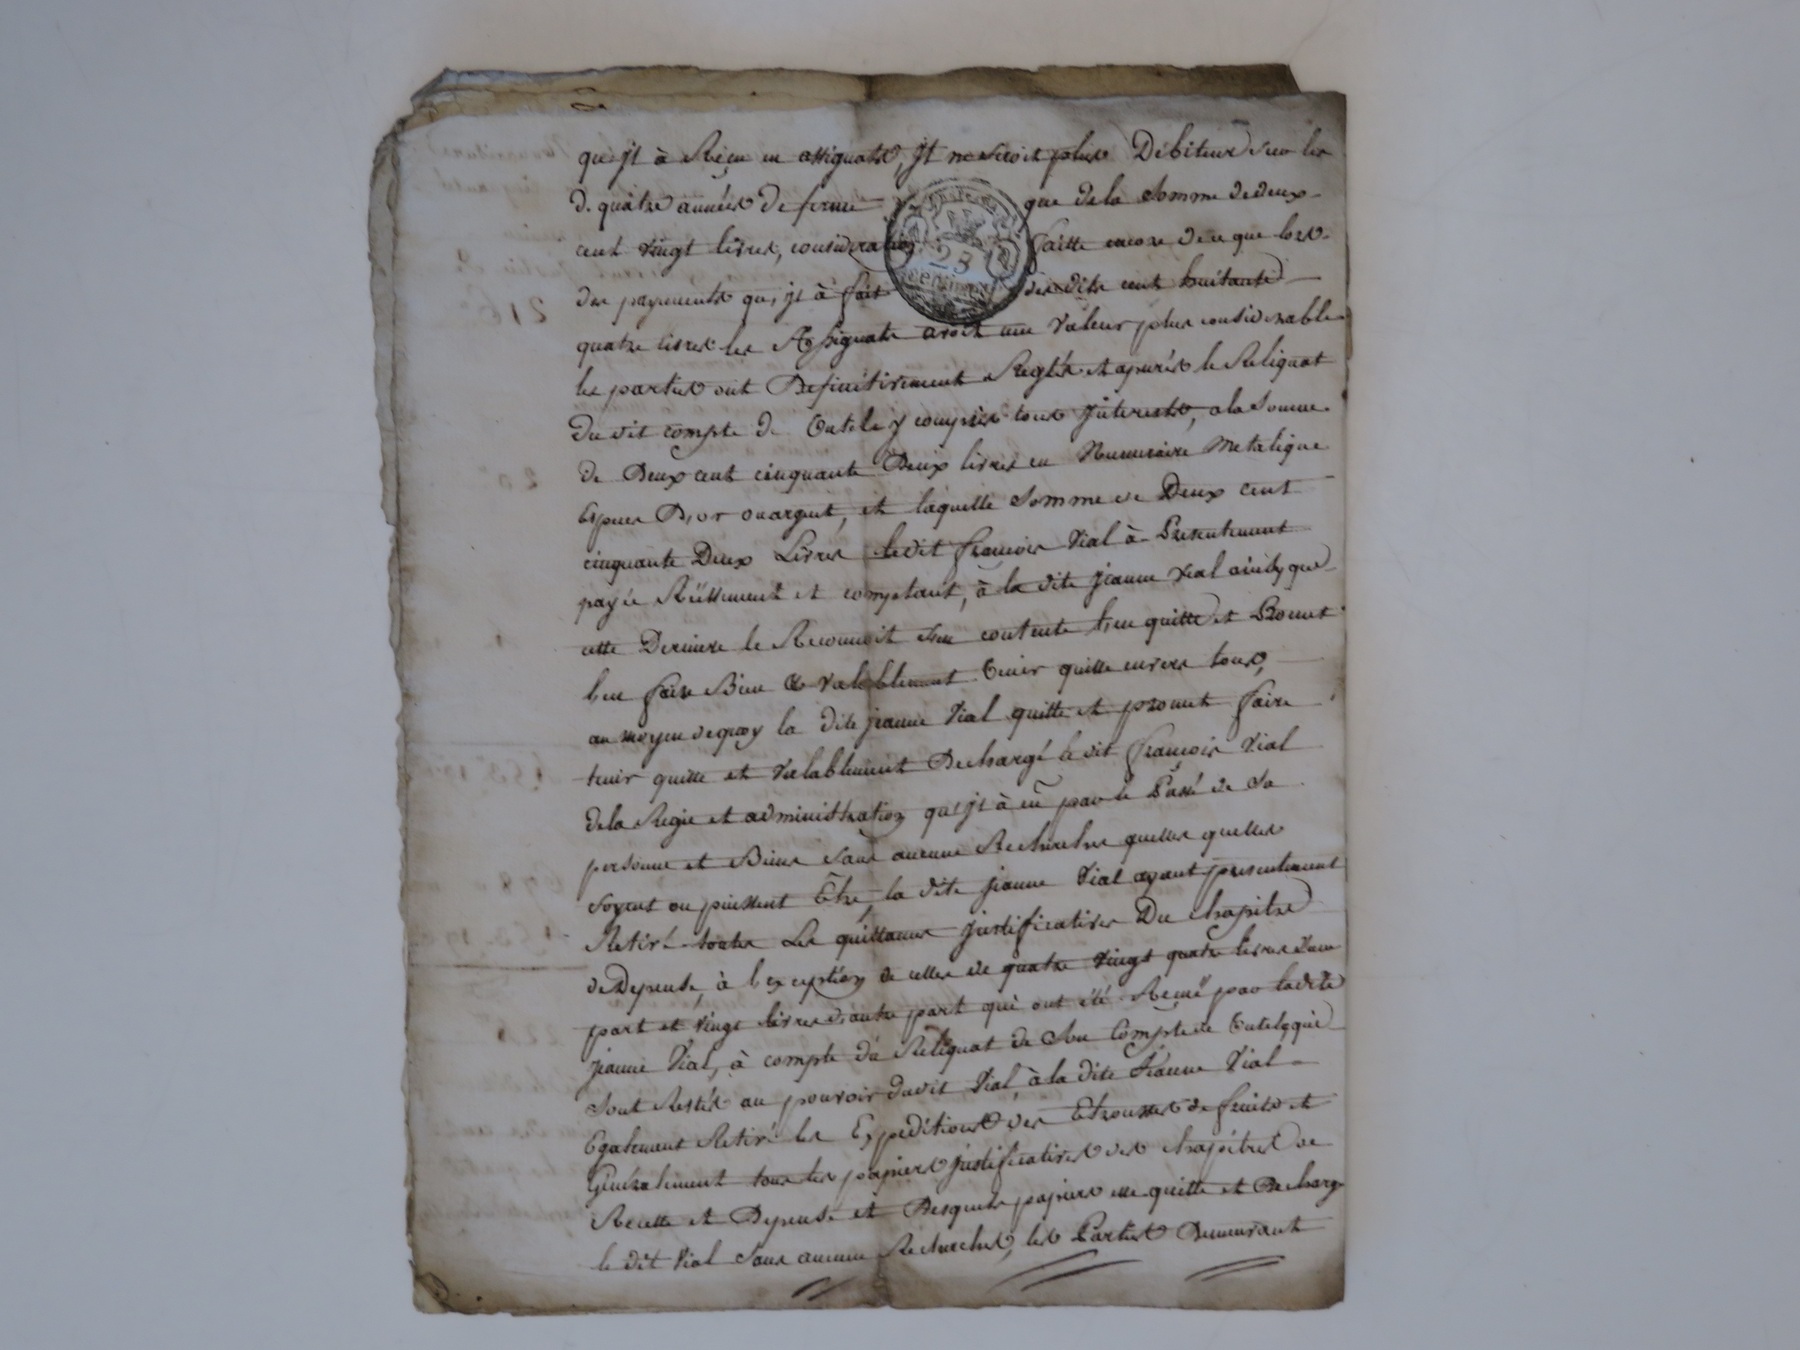 qu'jl à Reçu en assignats, jl ne seroit plus Débiteur sur les
de quatre années de ferme que de la Somme de deux
cent vingt livres, consideration faitte encore de ce que lors
des payements qu'jl à fait des dits cent huitante
quatre livres les Assignats avoit une valeur plus considerable
les parties ont Definitivement Reglés et apurés le Reliquat
du dit compte de Tutele y compris tous jnterests, a la Somme
de Deux cent cinquante Deux livres en Numeraire Metalique
Espèces D'or ou argent, et laquelle Somme de Deux cent
cinquante Deux Livres ledit françois Vial à Presentement
payée Réellement et comptant, à la dite jeanne Vial ainsy que
cette Derniere le Reconnoit s'en contente l'en quitte et Promet
l'en faire Bien & valablement Tenir quitte envers tous,
au moyen de quoy la dite jeanne Vial quitte et promet faire
tenir quitte et valablement Dechargé le dit françois Vial
de la Regie et administration qu'jl à eû par le Passé de Sa
personne et Biens Sans aucune Recherches quelles quelles
soyent ou puissent Être, la dite jeanne Vial ayant presentement
Retiré toutes Les quittances justificatives Du chapitre
de Depense, à l'exception de celles de quatre vingt quatre livres d'une
part et vingt livres d'autre part qui ont été Reçuë par ladite
jeanne Vial, à compte du Reliquat de Son Compte de Tutele, qui
Sont Restés au pouvoir dudit Vial, à la dite Jeanne Vial
Egalement Retiré les Expeditions des Etrousses de fruits et
Généralement tous les papiers justificatives des chapitres de
Recette et Depense et Desquels papiers elle quitte et Decharge
le dit Vial Sans aucune Recherches, les Parties Demeurant
23